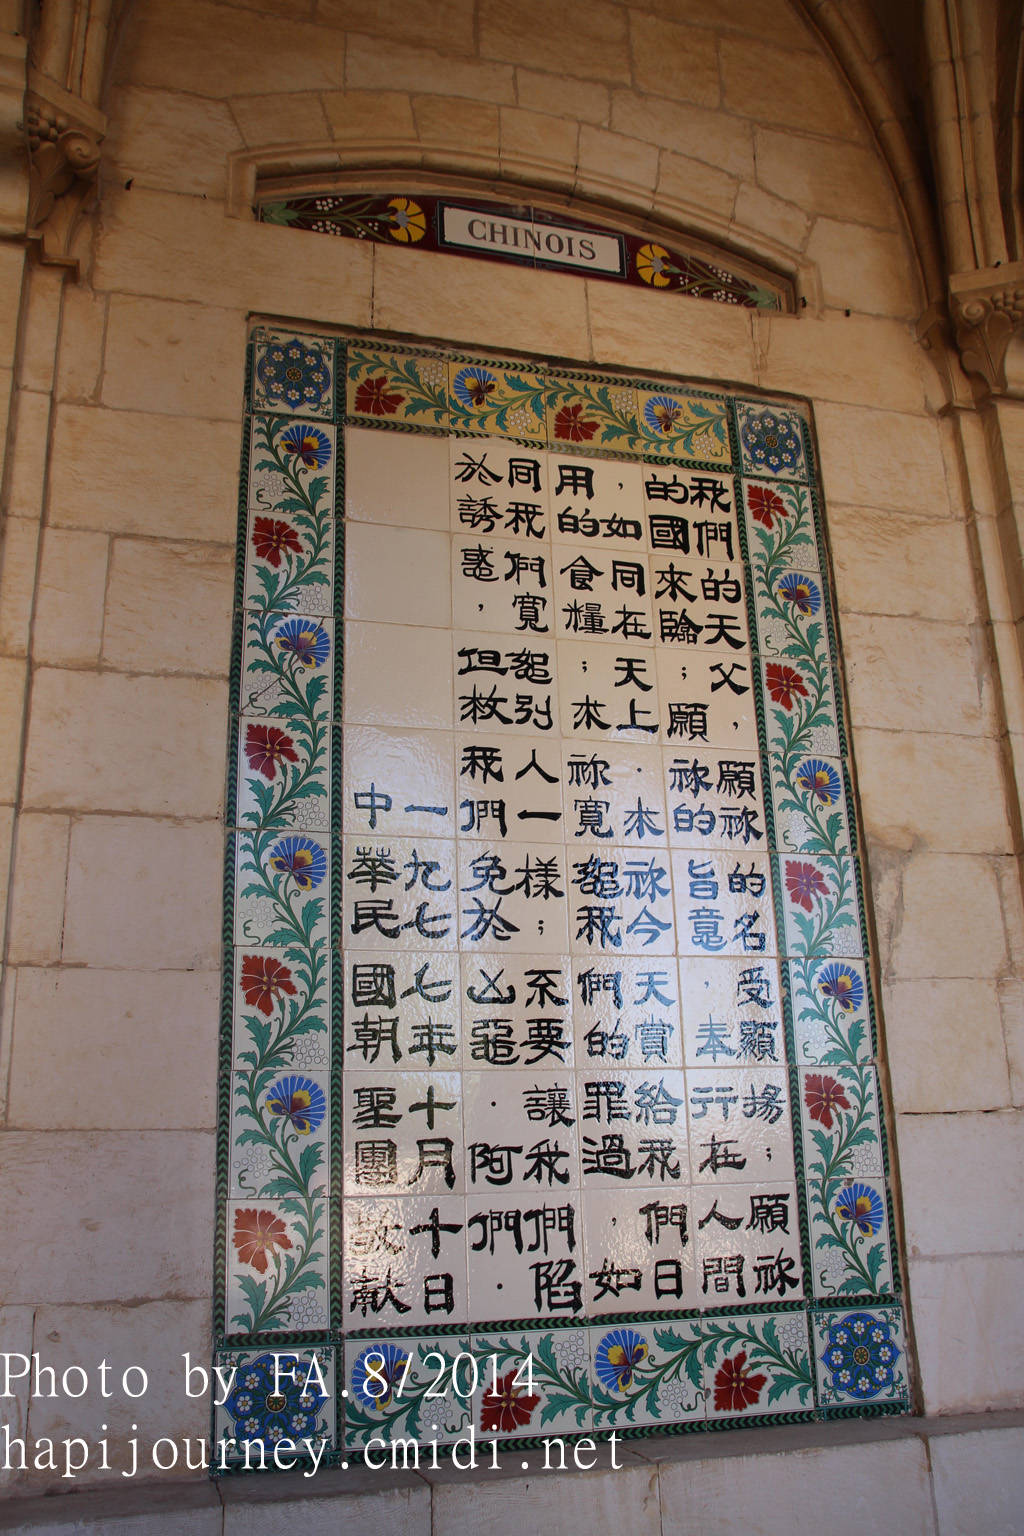 CHINOIS
我們的天父，願祢的名受顯揚；願祢
的國來臨；願祢的旨意，奉行在人間
，如同在天上．求祢今天賞給我們日
用的食糧；求祢寬恕我們的罪過，如
同我們寬恕別人一樣；不要讓我們陷
於誘惑，但救我們免於凶惡．阿們．
一九七七年十月十日
中華民國朝聖團敬獻
Photo by FA.8/2014
hapijourney.cmidi.net